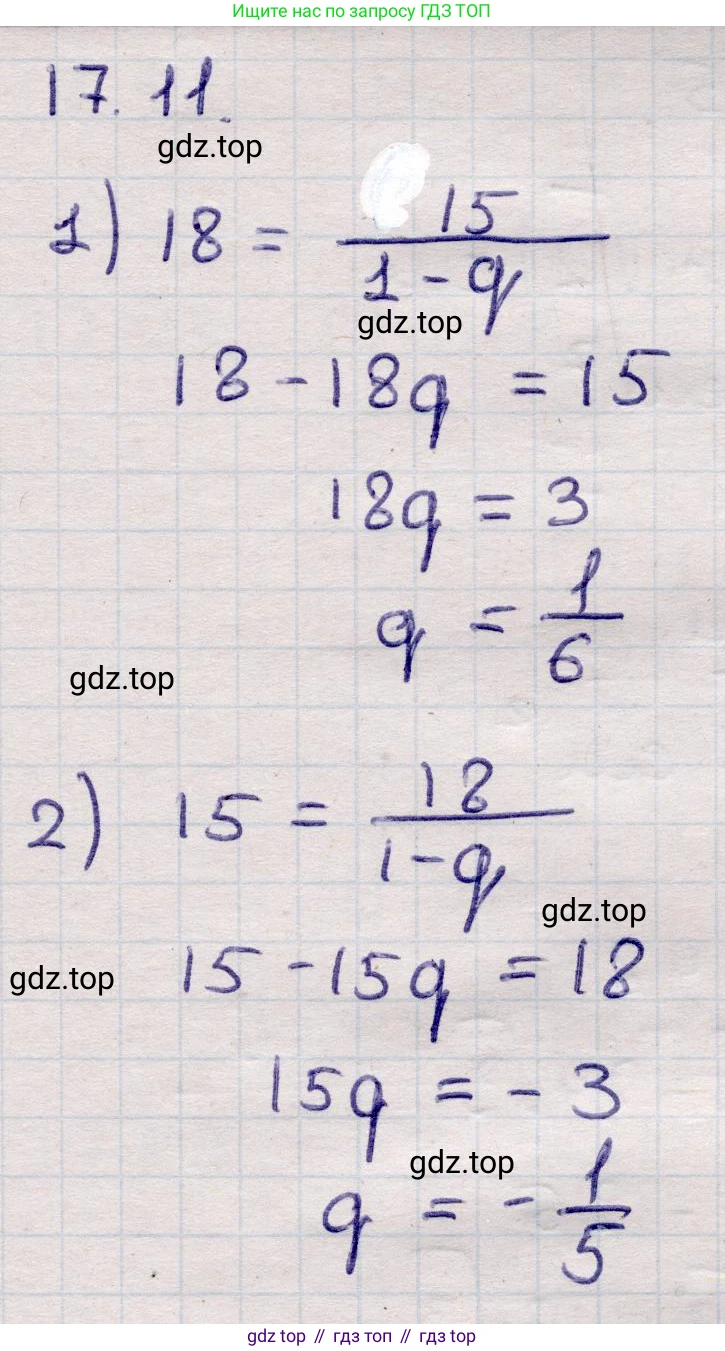 Ищите нас по запросу ГДЗ ТОП
17.11.
gdz.top
1) 18 = 15 / (1 - q)
gdz.top
18 - 18q = 15
18q = 3
q = 1/6
gdz.top
2) 15 = 18 / (1 - q)
gdz.top
15 - 15q = 18
gdz.top
15q = - 3
gdz.top
q = - 1/5
gdz top // гдз топ // gdz top